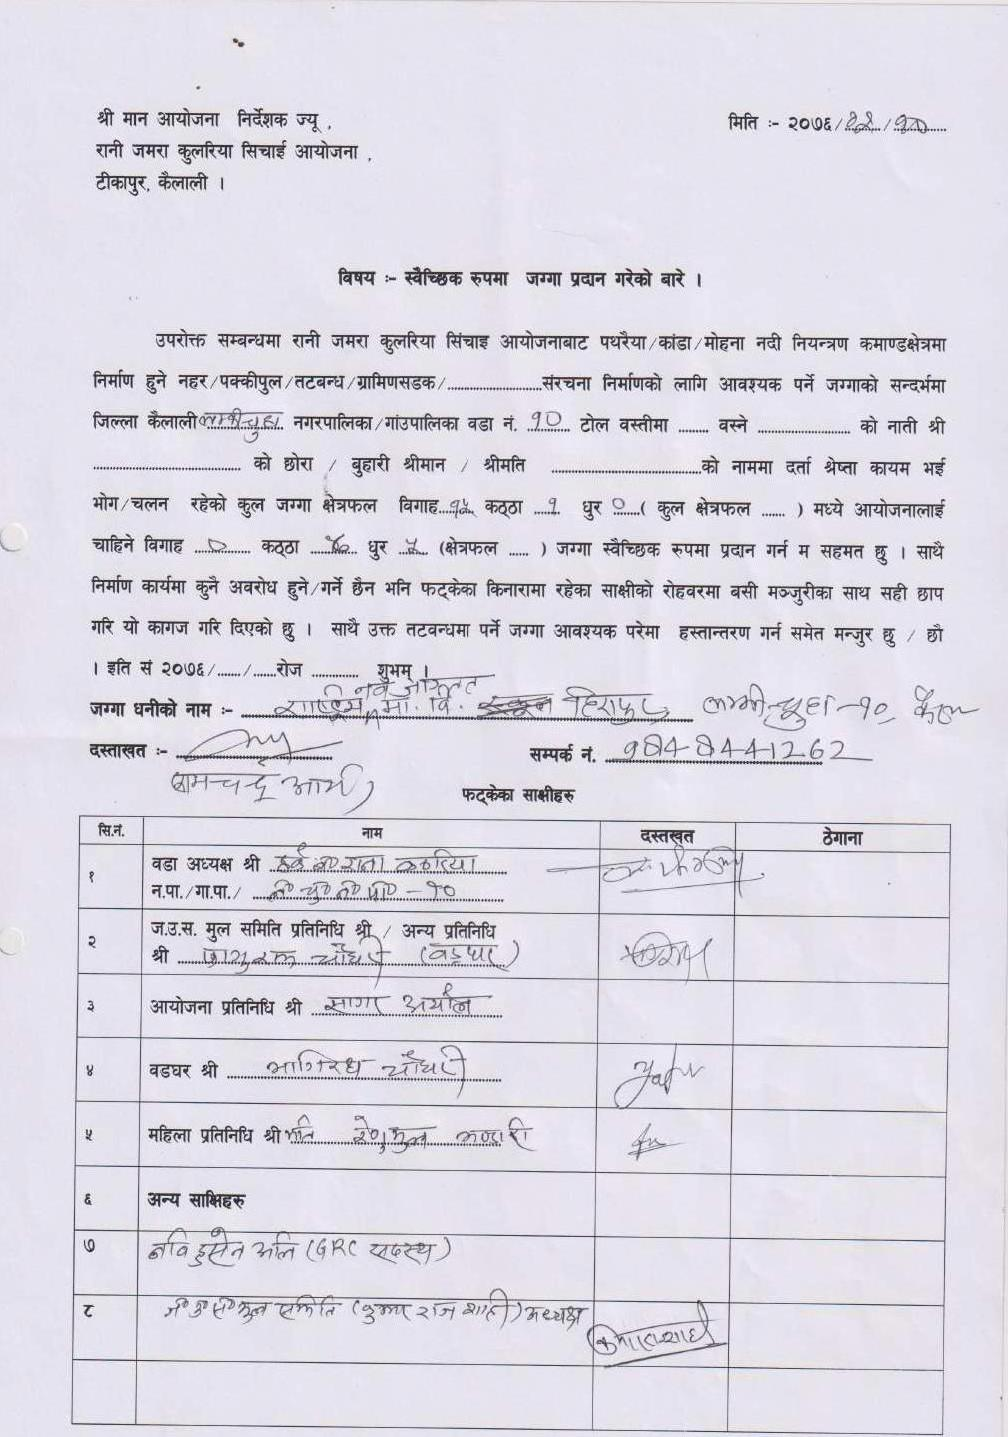 श्री मान आयोजना निर्देशक ज्यू ,
मिति :- २०७६/११/१०
रानी जमरा कुलरिया सिचाई आयोजना ,
टीकापुर, कैलाली ।
विषय :- स्वैच्छिक रुपमा जग्गा प्रदान गरेको बारे ।
उपरोक्त सम्बन्धमा रानी जमरा कुलरिया सिंचाइ आयोजनाबाट पथरैया/कांडा/मोहना नदी नियन्त्रण कमाण्डक्षेत्रमा
निर्माण हुने नहर/पक्कीपुल/तटबन्ध/ग्रामिणसडक/........................संरचना निर्माणको लागि आवश्यक पर्ने जग्गाको सन्दर्भमा
जिल्ला कैलाली लम्कीचुहा नगरपालिका/गांउपालिका वडा नं. १० टोल वस्तीमा ........ वस्ने ........................ को नाती श्री
...................................... को छोरा / बुहारी श्रीमान / श्रीमति ......................................को नाममा दर्ता श्रेष्ता कायम भई
भोग/चलन रहेको कुल जग्गा क्षेत्रफल विगाह १५ कठ्ठा १ धुर ० ( कुल क्षेत्रफल ...... ) मध्ये आयोजनालाई
चाहिने विगाह ० कठ्ठा धुर (क्षेत्रफल ..... ) जग्गा स्वैच्छिक रुपमा प्रदान गर्न म सहमत छु । साथै
निर्माण कार्यमा कुनै अवरोध हुने/गर्ने छैन भनि फट्केका किनारामा रहेका साक्षीको रोहवरमा बसी मञ्जुरीका साथ सही छाप
गरि यो कागज गरि दिएको छु । साथै उक्त तटवन्धमा पर्ने जग्गा आवश्यक परेमा हस्तान्तरण गर्न समेत मन्जुर छु / छौ
। इति सं २०७६/....../......रोज ............ शुभम् ।
नव जागृत
जग्गा धनीको नाम :- राष्ट्रिय मा. वि. हिराफुट लम्कीचुहा -१०, कैला
दस्ताखत :-
सम्पर्क नं. 9848441262
रामचन्द्र आर्य
फट्केका साक्षीहरु
सि.नं. नाम दस्तखत ठेगाना
१ वडा अध्यक्ष श्री कठरिया
न.पा./गा.पा./ ल० चु० न० पा० -१०
२ ज.उ.स. मुल समिति प्रतिनिधि श्री / अन्य प्रतिनिधि
श्री चौधरी (वडघर)
३ आयोजना प्रतिनिधि श्री सागर अर्याल
४ वडघर श्री भागिरथ चौधरी
५ महिला प्रतिनिधि श्री मति भण्डारी
६ अन्य साक्षिहरु
७ नवि हुसेन अलि (GRC सदस्य)
८ ज० उ० स० मुल समिति (कुमार राज शाही) अध्यक्ष